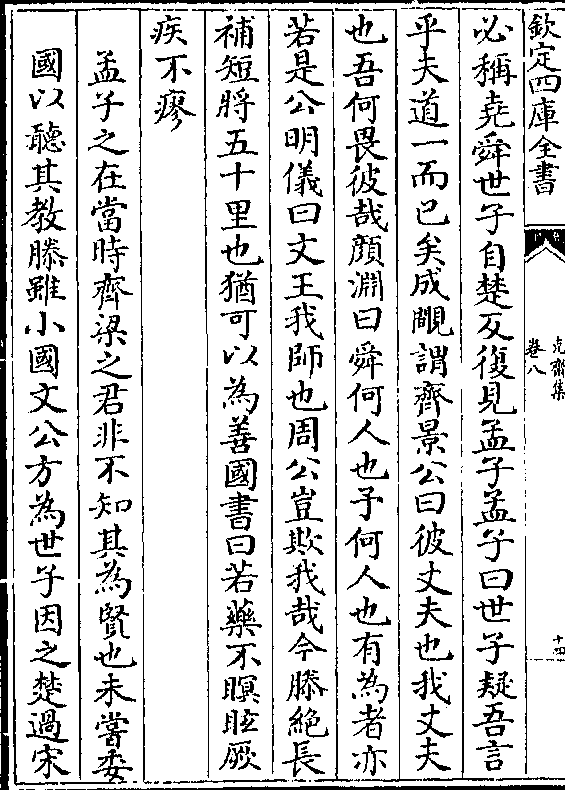 欽定四庫全書
克齋集
卷八
十四
必稱堯舜世子自楚反復見孟子孟子曰世子疑吾言
乎夫道一而已矣成覵謂齊景公曰彼丈夫也我丈夫
也吾何畏彼哉顔淵曰舜何人也予何人也有為者亦
若是公明儀曰文王我師也周公豈欺我哉今滕絶長
補短將五十里也猶可以為善國書曰若藥不瞑眩厥
疾不瘳
孟子之在當時齊梁之君非不知其為賢也未嘗委
國以聽其教滕雖小國文公方為世子因之楚過宋